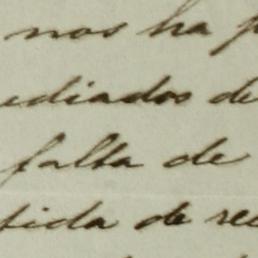 nos ha
ediados de
falta de
tida de rec